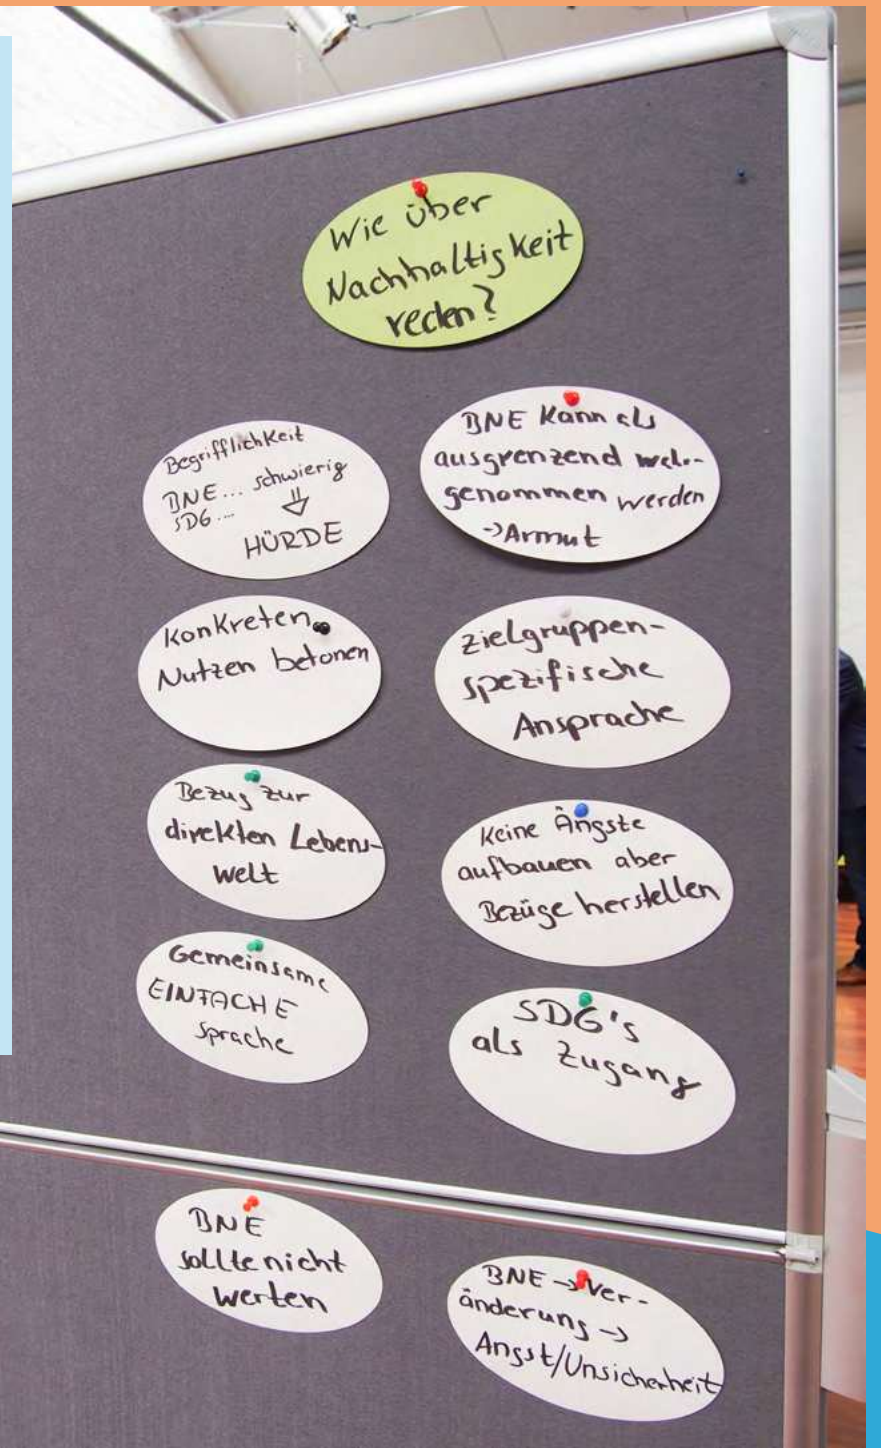 Wie über
Nachhaltigkeit
reden?
Begrifflichkeit
BNE... schwierig
SDG....
⇓
HÜRDE
BNE kann als
ausgrenzend wahr-
genommen werden
→Armut
Konkreten
Nutzen betonen
Zielgruppen-
spezifische
Ansprache
Bezug zur
direkten Lebens-
welt
Keine Ängste
aufbauen aber
Bezüge herstellen
Gemeinsame
EINFACHE
Sprache
SDG's
als Zugang
BNE
sollte nicht
werten
BNE → Ver-
änderung →
Angst/Unsicherheit